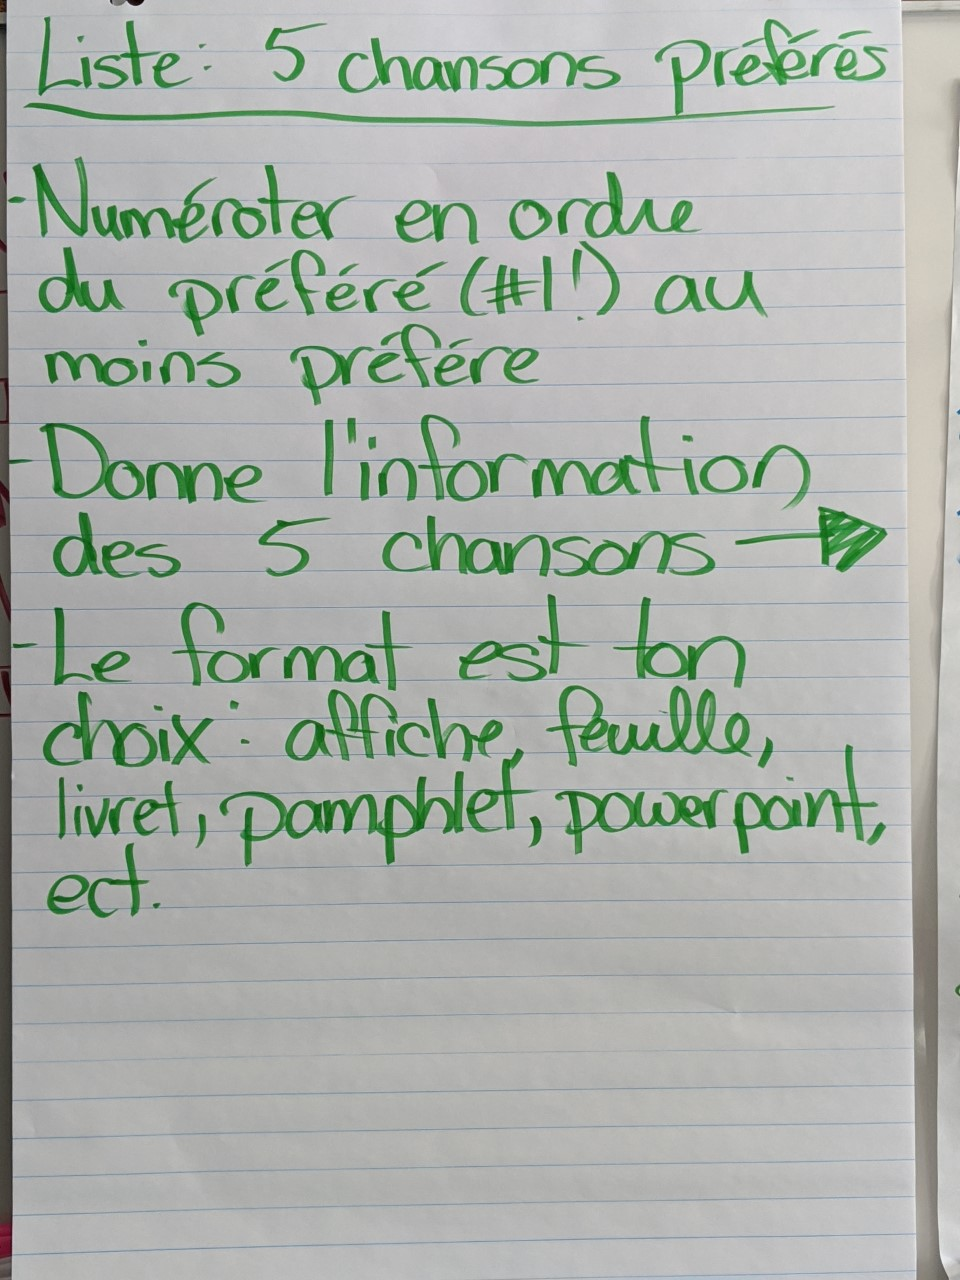 Liste: 5 chansons préférés
- Numéroter en ordre
du préféré (#1!) au
moins préfére
- Donne l'information
des 5 chansons →
- Le format est ton
choix: affiche, feuille,
livret, pamphlet, powerpoint,
ect.